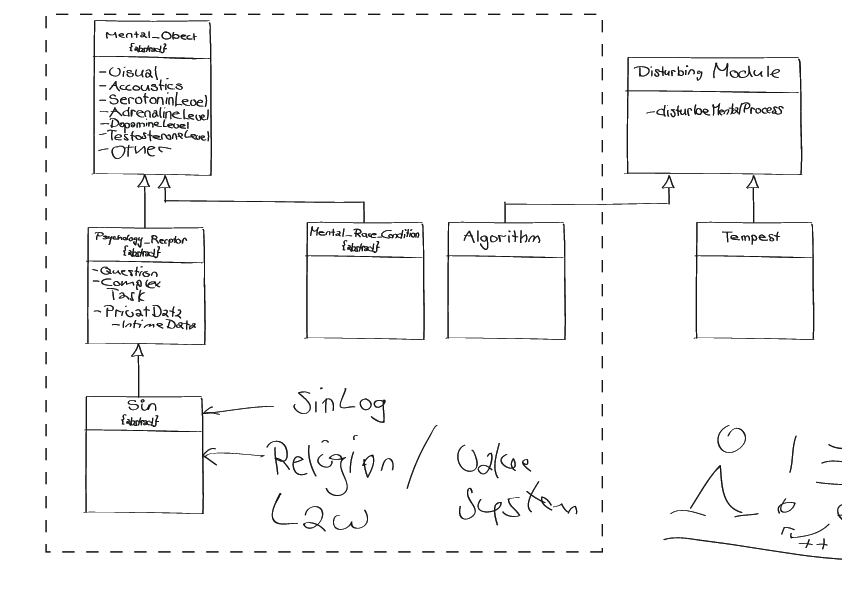 Mental_Obect
{abstract}
-Visual
-Accoustics
-SerotoninLevel
-AdrenalineLevel
-DopamineLevel
-TestosteroneLevel
-Other
Disturbing Module
-disturbeMentalProcess
Psychology_Receptor
{abstract}
-Question
-Complex
Task
-PrivatData
-IntimeData
Mental_Race_Condition
{abstract}
Algorithm
Tempest
Sin
{abstract}
SinLog
Religion / Value
Law System
++